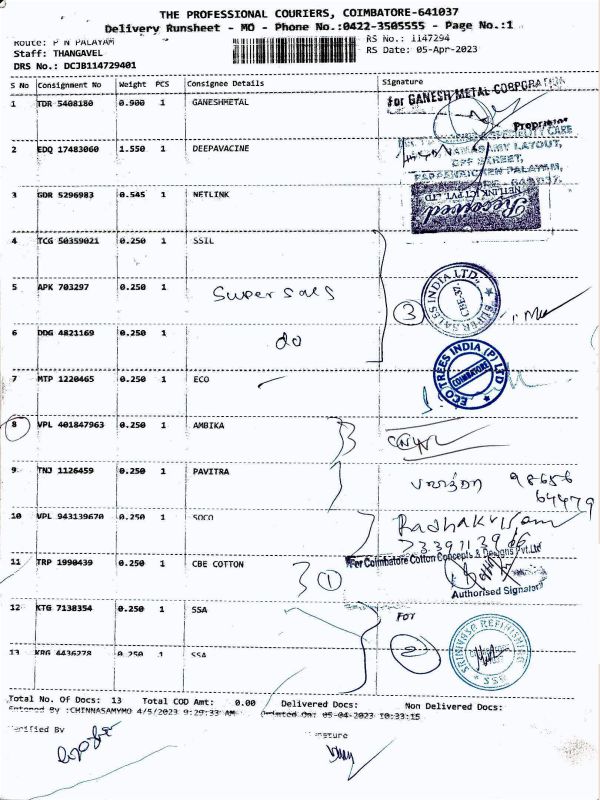 THE PROFESSIONAL COURIERS, COIMBATORE-641037
Delivery Runsheet - MO - Phone No.:0422-3505555 - Page No.:1
Route: P N PALAYAM
RS No.: 1147294
Staff: THANGAVEL
RS Date: 05-Apr-2023
DRS No.: DCJB114729401
S No Consignment No Weight PCS Consignee Details Signature
1 TDR 5408180 0.900 1 GANESHMETAL
for GANESH METAL CORPORATION
Proprietor
2 EDQ 17483060 1.550 1 DEEPAVACINE
CARE
LAYOUT,
OPP STREET,
PAPPANAICKEN PALAYAM,
3 GDR 5296983 0.545 1 NETLINK
NETLINK (CT) PVT. LTD
Received
4 TCG 50359021 0.250 1 SSIL
5 APK 703297 0.250 1
Super sales
3
SUPER SALES INDIA LTD. CBE-37
6 DDG 4821169 0.250 1
do
7 MTP 1220465 0.250 1 ECO
ECO TREES INDIA (P) LTD COIMBATORE
8 VPL 401847963 0.250 1 AMBIKA
9 TNJ 1126459 0.250 1 PAVITRA
98656
64479
10 VPL 943139670 0.250 1 SOCO
Radhakrisnan
11 TRP 1990439 0.250 1 CBE COTTON
1
For Coimbatore Cotton Concepts & Designs Pvt.Ltd
Authorised Signatory
12 KTG 7138354 0.250 1 SSA
FOR
2
SRINIVASA REFINISHING
13 KRG 4436278 0.250 1 SSA
Total No. Of Docs: 13 Total COD Amt: 0.00 Delivered Docs: Non Delivered Docs:
Entered By :CHINNASAMYMO 4/5/2023 9:29:33 AM Printed On: 05-04-2023 10:33:15
Verified By
Signature